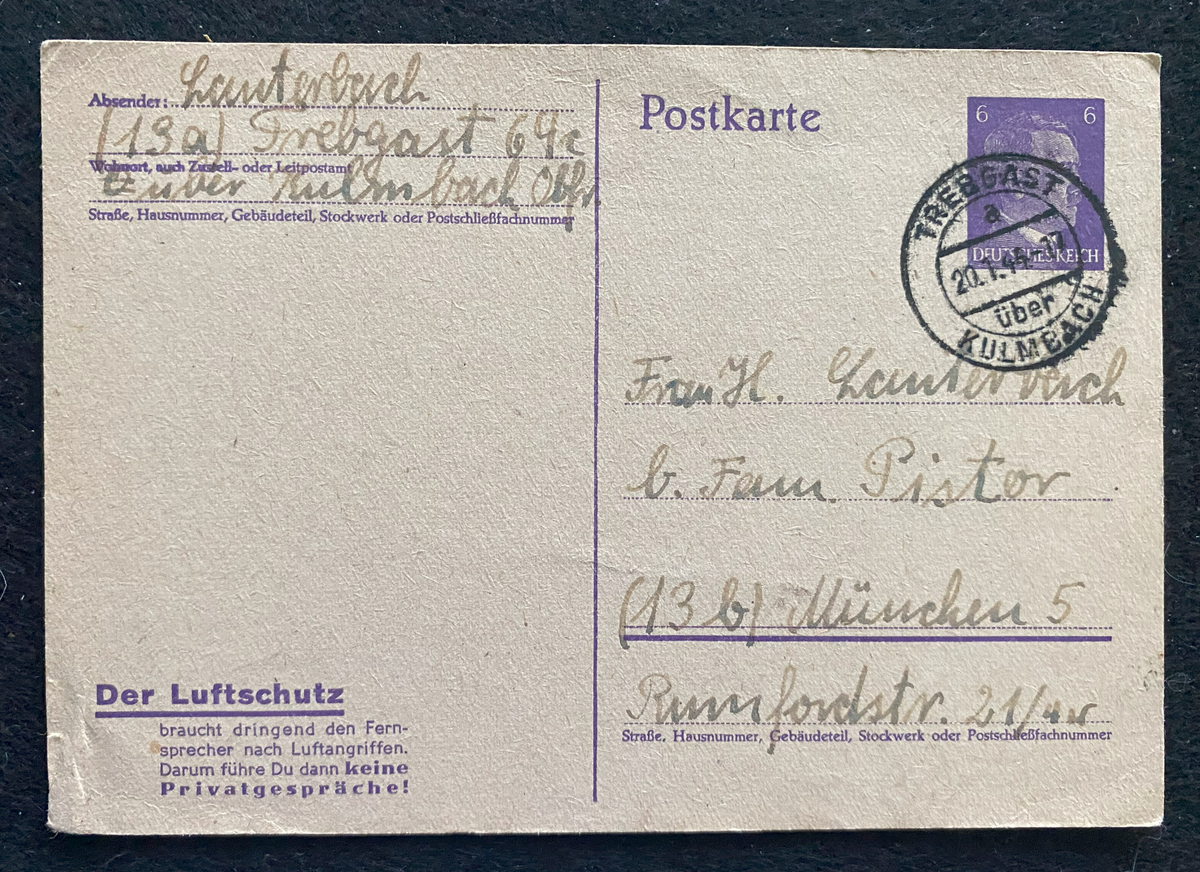 Absender: Lauterbach
(13a) Trebgast 64c
Wohnort, auch Zustell- oder Leitpostamt
über Kulmbach Obfr.
Straße, Hausnummer, Gebäudeteil, Stockwerk oder Postschließfachnummer
Der Luftschutz
braucht dringend den Fern-
sprecher nach Luftangriffen.
Darum führe Du dann keine
Privatgespräche!
Postkarte
6 6
DEUTSCHES REICH
TREBGAST
a
20.1.44-17
über
KULMBACH
Frau H. Lauterbach
b. Fam. Pistor
(13b) München 5
Rumfordstr. 21/4
Straße, Hausnummer, Gebäudeteil, Stockwerk oder Postschließfachnummer